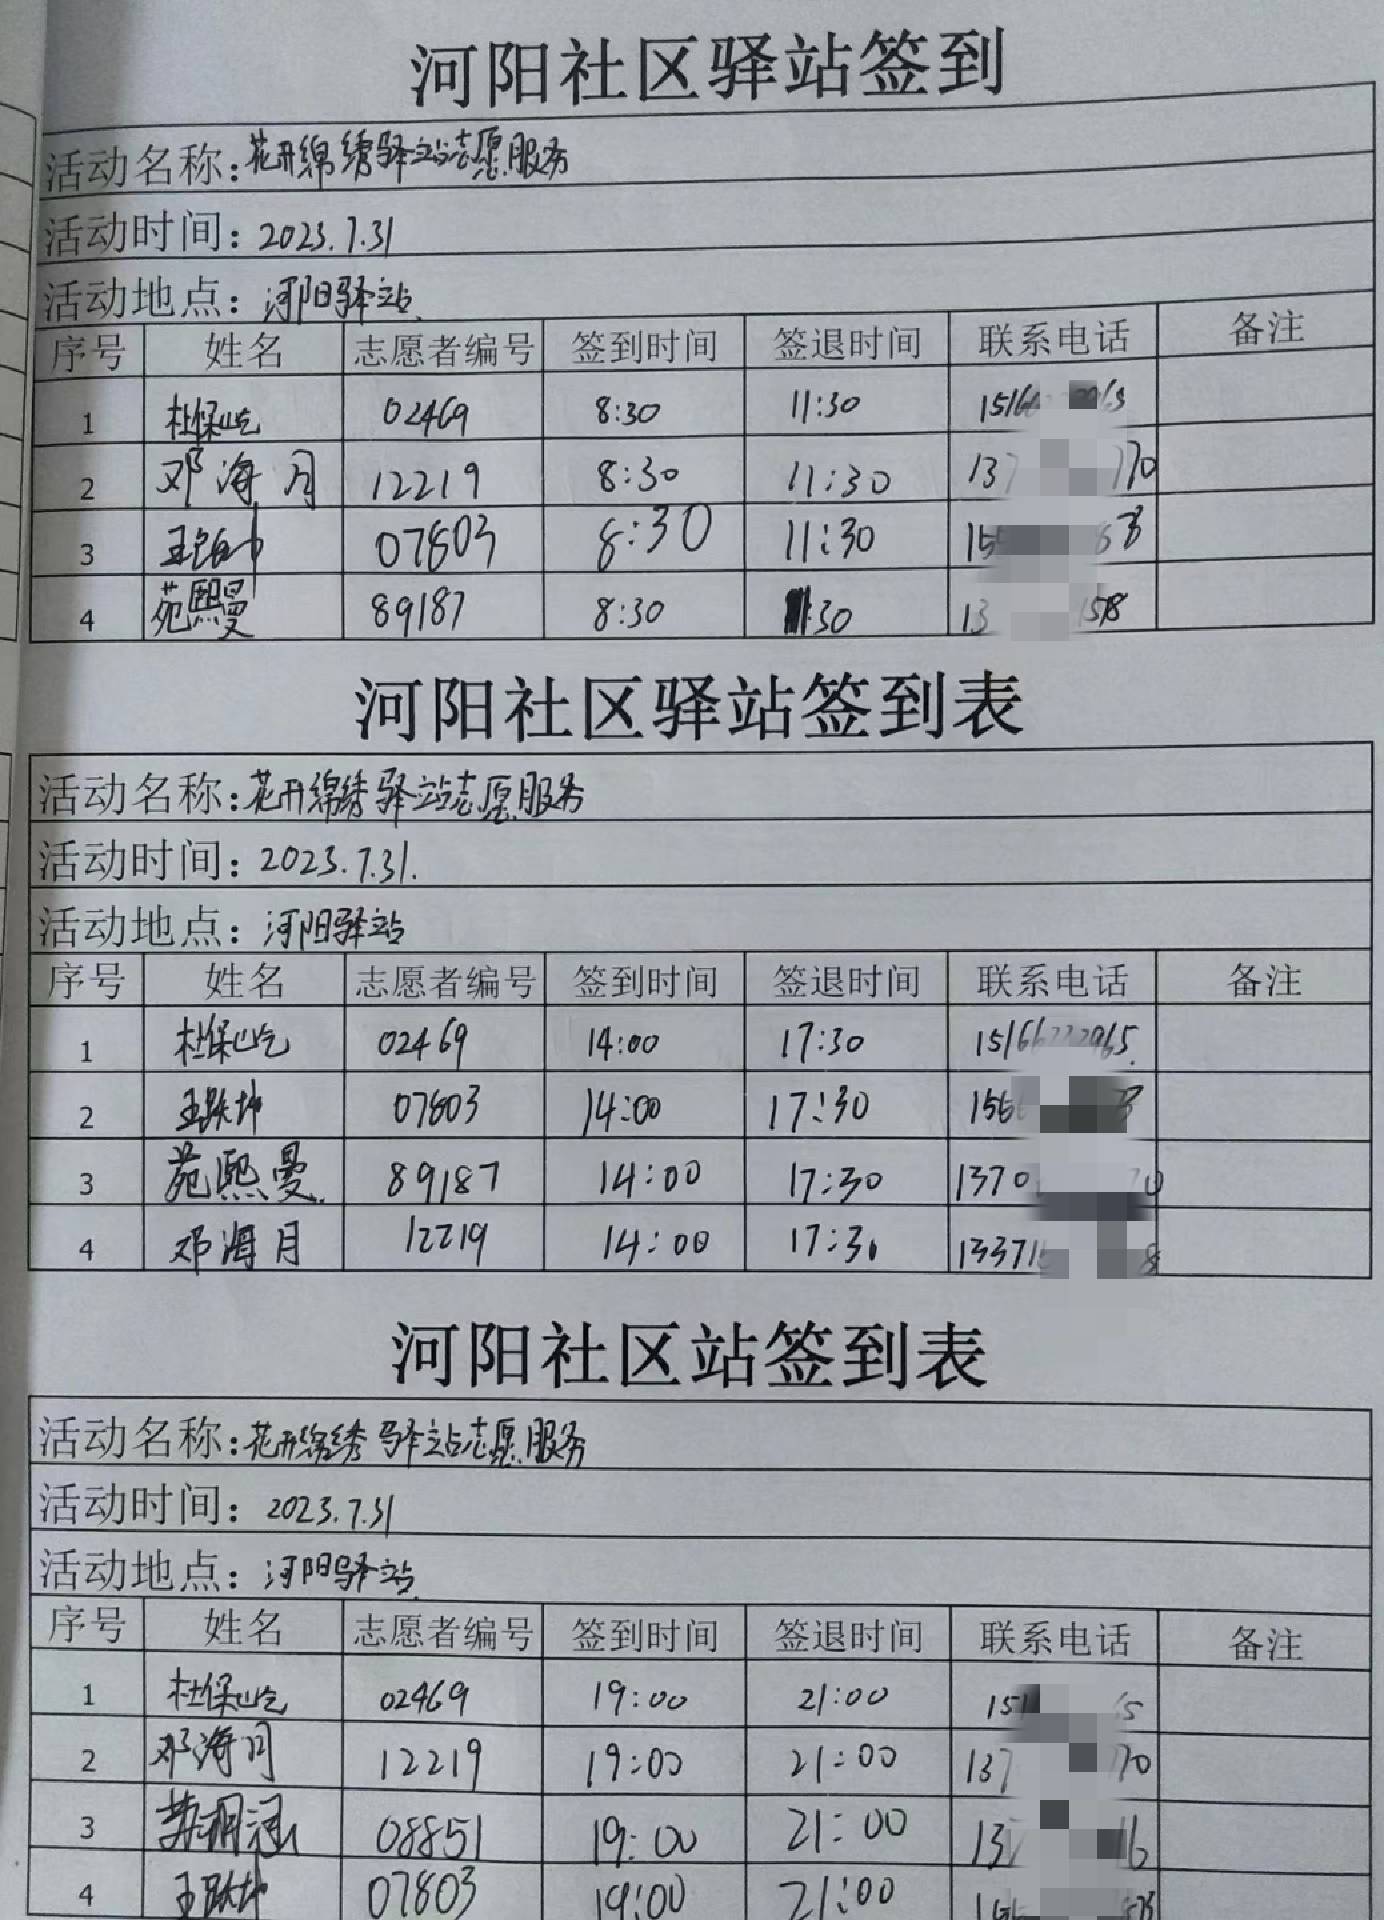 河阳社区驿站签到
活动名称：花开绵绣驿站志愿服务
活动时间：2023.7.31
活动地点：河阳驿站
序号 姓名 志愿者编号 签到时间 签退时间 联系电话 备注
1 杜保屹 02469 8:30 11:30
2 邓海月 12219 8:30 11:30
3 07803 8:30 11:30
4 苑熙曼 89187 8:30 11:30
河阳社区驿站签到表
活动名称：花开绵绣驿站志愿服务
活动时间：2023.7.31.
活动地点：河阳驿站
序号 姓名 志愿者编号 签到时间 签退时间 联系电话 备注
1 杜保屹 02469 14:00 17:30
2 07803 14:00 17:30
3 苑熙曼 89187 14:00 17:30
4 邓海月 12219 14:00 17:30
河阳社区站签到表
活动名称：花开绵绣驿站志愿服务
活动时间：2023.7.31
活动地点：河阳驿站
序号 姓名 志愿者编号 签到时间 签退时间 联系电话 备注
1 杜保屹 02469 19:00 21:00
2 邓海月 12219 19:00 21:00
3 08851 19:00 21:00
4 07803 19:00 21:00